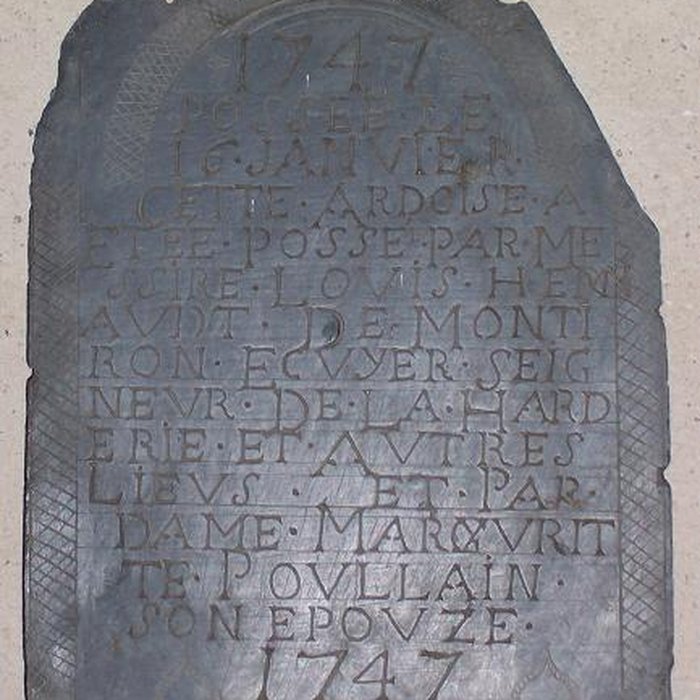 1747
POSSEE·LE·
16·JANVIER·
CETTE·ARDOISE·A
ETEE·POSSE·PAR·ME
SSIRE·LOVIS·HEN
AVDT·DE·MONTI
RON·ECVYER·SEIG
NEVR·DE·LA·HARD
ERIE·ET·AVTRES
LIEVS·ET·PAR·
DAME·MARGVRIT
TE·POVLLAIN·
SON EPOVZE·
1747